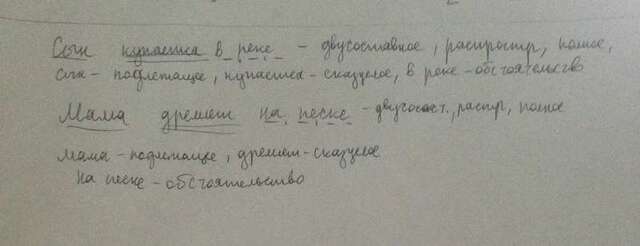 Сын купается в реке - двусоставное, распростр, полное,
сын - подлежащее, купается - сказуемое, в реке - обстоятельство
Мама дремет на песке - двусост., распр, полное
мама - подлежащее, дремет - сказуемое
на песке - обстоятельство